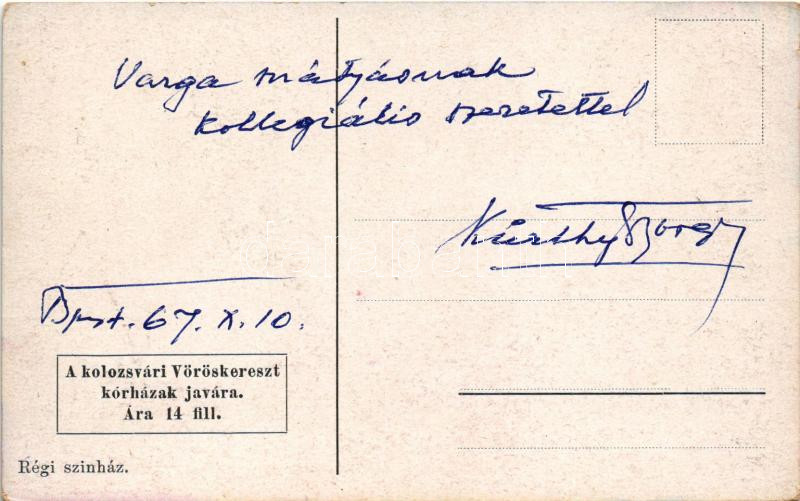 Varga Mátyásnak
kollegiális szeretettel
Kürthy György
Bpest. 67. X. 10.
A kolozsvári Vöröskereszt
kórházak javára.
Ára 14 fill.
Régi szinház.